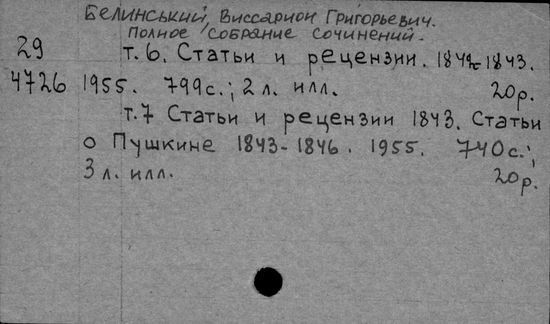 Белинський, Виссарион Григорьевич.
Полное собрание сочинений.
29 т. 6. Статьи и рецензии. 1842-1843.
4726 1955. 799с.; 2 л. илл. 20р.
т.7 Статьи и рецензии 1843. Статьи
о Пушкине 1843-1846. 1955. 740с.;
3 л. илл. 20р.